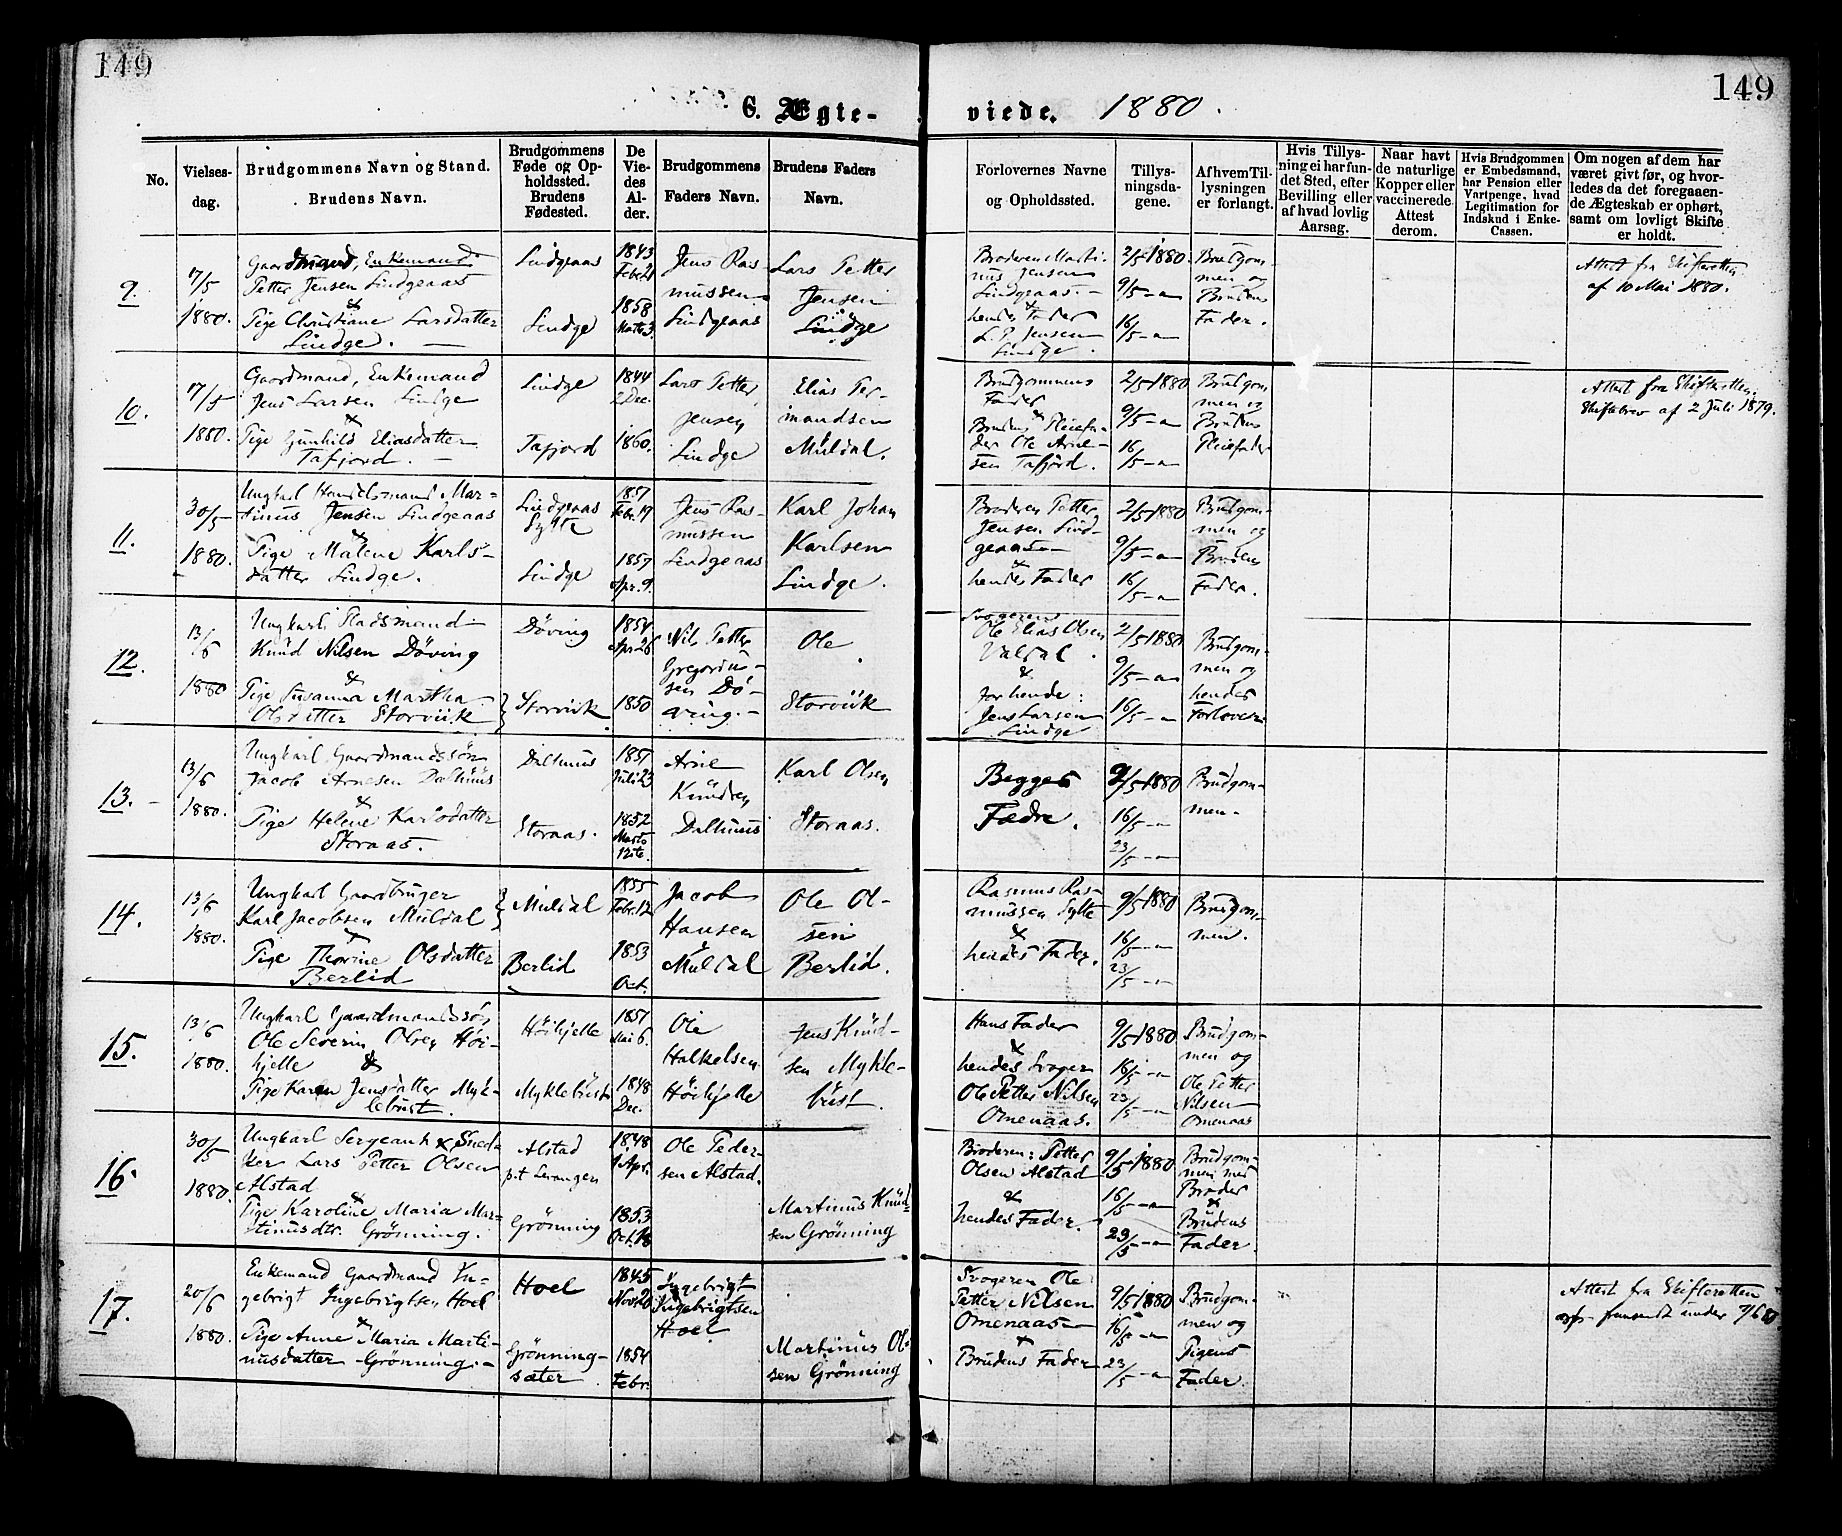 149
149
G. Ægte-
viede. 1880.
No.
Vielses-
dag.
Brudgommens Navn og Stand.
Brudens Navn.
Brudgommens
Føde og Op-
holdssted.
Brudens
Fødested.
De
Vie-
des
Al-
der.
Brudgommens
Faders Navn.
Brudens Faders
Navn.
Forlovernes Navne
og Opholdssted.
Tillys-
ningsda-
gene.
Af hvem Til-
lysningen
er forlangt.
Hvis Tillys-
ning ei har fun-
det Sted, efter
Bevilling eller
af hvad lovlig
Aarsag.
Naar havt
de naturlige
Kopper eller
vaccinerede.
Attest
derom.
Hvis Brudgommen
er Embedsmand,
har Pension eller
Vartpenge, hvad
Legitimation for
Indskud i Enke-
Cassen.
Om nogen af dem har
været givt før, og hvor-
ledes da det foregaaen-
de Ægteskab er ophørt,
samt om lovligt Skifte
er holdt.
9.
17/5
1880.
Gaardmand, Enkemand
Petter Jensen Lindgeaas
&
Pige Christiane Larsdatter
Lindge.
Lindgeaas
Lindge
1843
Febr. 21
1858
Marts 3.
Jens Ras-
mussen
Lindgeaas
Lars Petter
Jensen
Lindge
Broderen Marti-
nus Jensen
Lindgeaas.
&
hendes Fader
L. P. Jensen
Lindge.
2/5 1880
9/5 - "
16/5 - "
Brudgom-
men og
Brudens
Fader.
Attest fra Skifteretten
af 10 Mai 1880.
10.
17/5
1880.
Gaardmand, Enkemand
Jens Larsen Lindge
&
Pige Gunhild Eliasdatter
Tafjord.
Lindge
Tafjord
1844
2 Dec.
1860.
Lars Petter
Jensen
Lindge
Elias Per-
mandsen
Muldal.
Brudgommens
Fader
&
Brudens Pleiefa-
der Ole Arne-
sen Tafjord.
2/5 1880
9/5 - "
16/5 - "
Brudgom-
men og
Brudens
Pleiefader
Attest fra Skifteretten,
Skiftebrev af 2 Juli 1879.
11.
30/5
1880.
Ungkarl Handelsmand Mar-
tinus Jensen Lindgeaas
&
Pige Malene Karls-
datter Lindge.
Lindgeaas
Sylte
Lindge
1857
Febr. 19
1857
Apr. 9.
Jens Ras-
mussen
Lindgeaas
Karl Johan
Karlsen
Lindge.
Broderen Petter
Jensen Lind-
geaas
&
hendes Fader
2/5 1880
9/5 - "
16/5 - "
Brudgom-
men og
Brudens
Fader.
12.
13/6
1880
Ungkarl Pladsmand
Knud Nilsen Döving
&
Pige Susanna Martha
Olsdatter Storviik
Döving
Storviik
1854
Apr. 26
1850
Nils Petter
Gregorius-
sen Dö-
ving.
Ole
Storviik
Svogeren
Ole Elias Olsen
Valdal.
&
for hende:
Jens Larsen
Lindge
2/5 1880
9/5 - "
16/5 - "
Brudgom-
men og
hendes
Forlover.
13.
13/6
1880.
Ungkarl Gaardmandssön
Jacob Arnesen Dalhuus
&
Pige Helene Karlsdatter
Storaas.
Dalhuus
Storaas.
1857
Juli 23
1852
Marts
12te.
Arne
Knudsen
Dalhuus
Karl Olsen
Storaas.
Begges
Fædre.
9/5 1880
16/5 - "
23/5 - "
Brudgom-
men.
14.
13/6
1880.
Ungkarl Gaardbruger
Karl Jacobsen Muldal
&
Pige Thorine Olsdatter
Berlid
Muldal
Berlid
1855
Febr. 12
1853
Oct.
Jacob
Hansen
Muldal
Ole Ol-
sen
Berlid.
Rasmus Ras-
mussen Sylte
&
hendes Fader.
9/5 1880
16/5 - "
23/5 - "
Brudgom-
men.
15.
13/6
1880.
Ungkarl Gaardmandssön
Ole Severin Olsen Höi-
hjelle &
Pige Karen Jensdatter Myk-
lebust.
Höihjelle
Myklebust
1857
Mai 6.
1848
Dec.
Ole
Halkelsen
Höihjelle
Jens Knud-
sen Mykle-
bust.
Hans Fader
&
hendes Svoger
Ole Petter Nilsen
Omenaas.
9/5 1880
16/5 - "
23/5 - "
Brudgom-
men og
Ole Petter
Nilsen
Omenaas
16.
30/5
1880.
Ungkarl Sergeant & Sned-
ker Lars Petter Olsen
Alstad
&
Pige Karoline Maria Mar-
tinusdtr. Grönning.
Alstad
p.t. Levanger
Grönning
1848
1 Apr.
1853
Oct. 18
Ole Peder-
sen Alstad.
Martinus Knud-
sen Grönning
Broderen: Petter
Olsen Alstad
&
hendes Fader.
9/5 1880
16/5 - "
23/5 - "
Brudgom-
mens
Broder
&
Brudens
Fader.
17.
20/6
1880.
Enkemand Gaardmand In-
gebrigt Ingebrigtsen Hoel
&
Pige Anne Maria Marti-
nusdatter Grönning.
Hoel
Grönning-
sæter
1845
Nov. 20
1854
Febr.
Ingebrigt
Ingebrigtsen
Hoel
Martinus Ol-
sen Grönning
Svogeren Ole
Petter Nilsen
Omenaas
&
Brudens Fader
9/5 1880
16/5 - "
23/5 - "
Brudgom-
men og
Pigens
Fader.
Attest fra Skifteretten
fremsendt under 7/6 80.